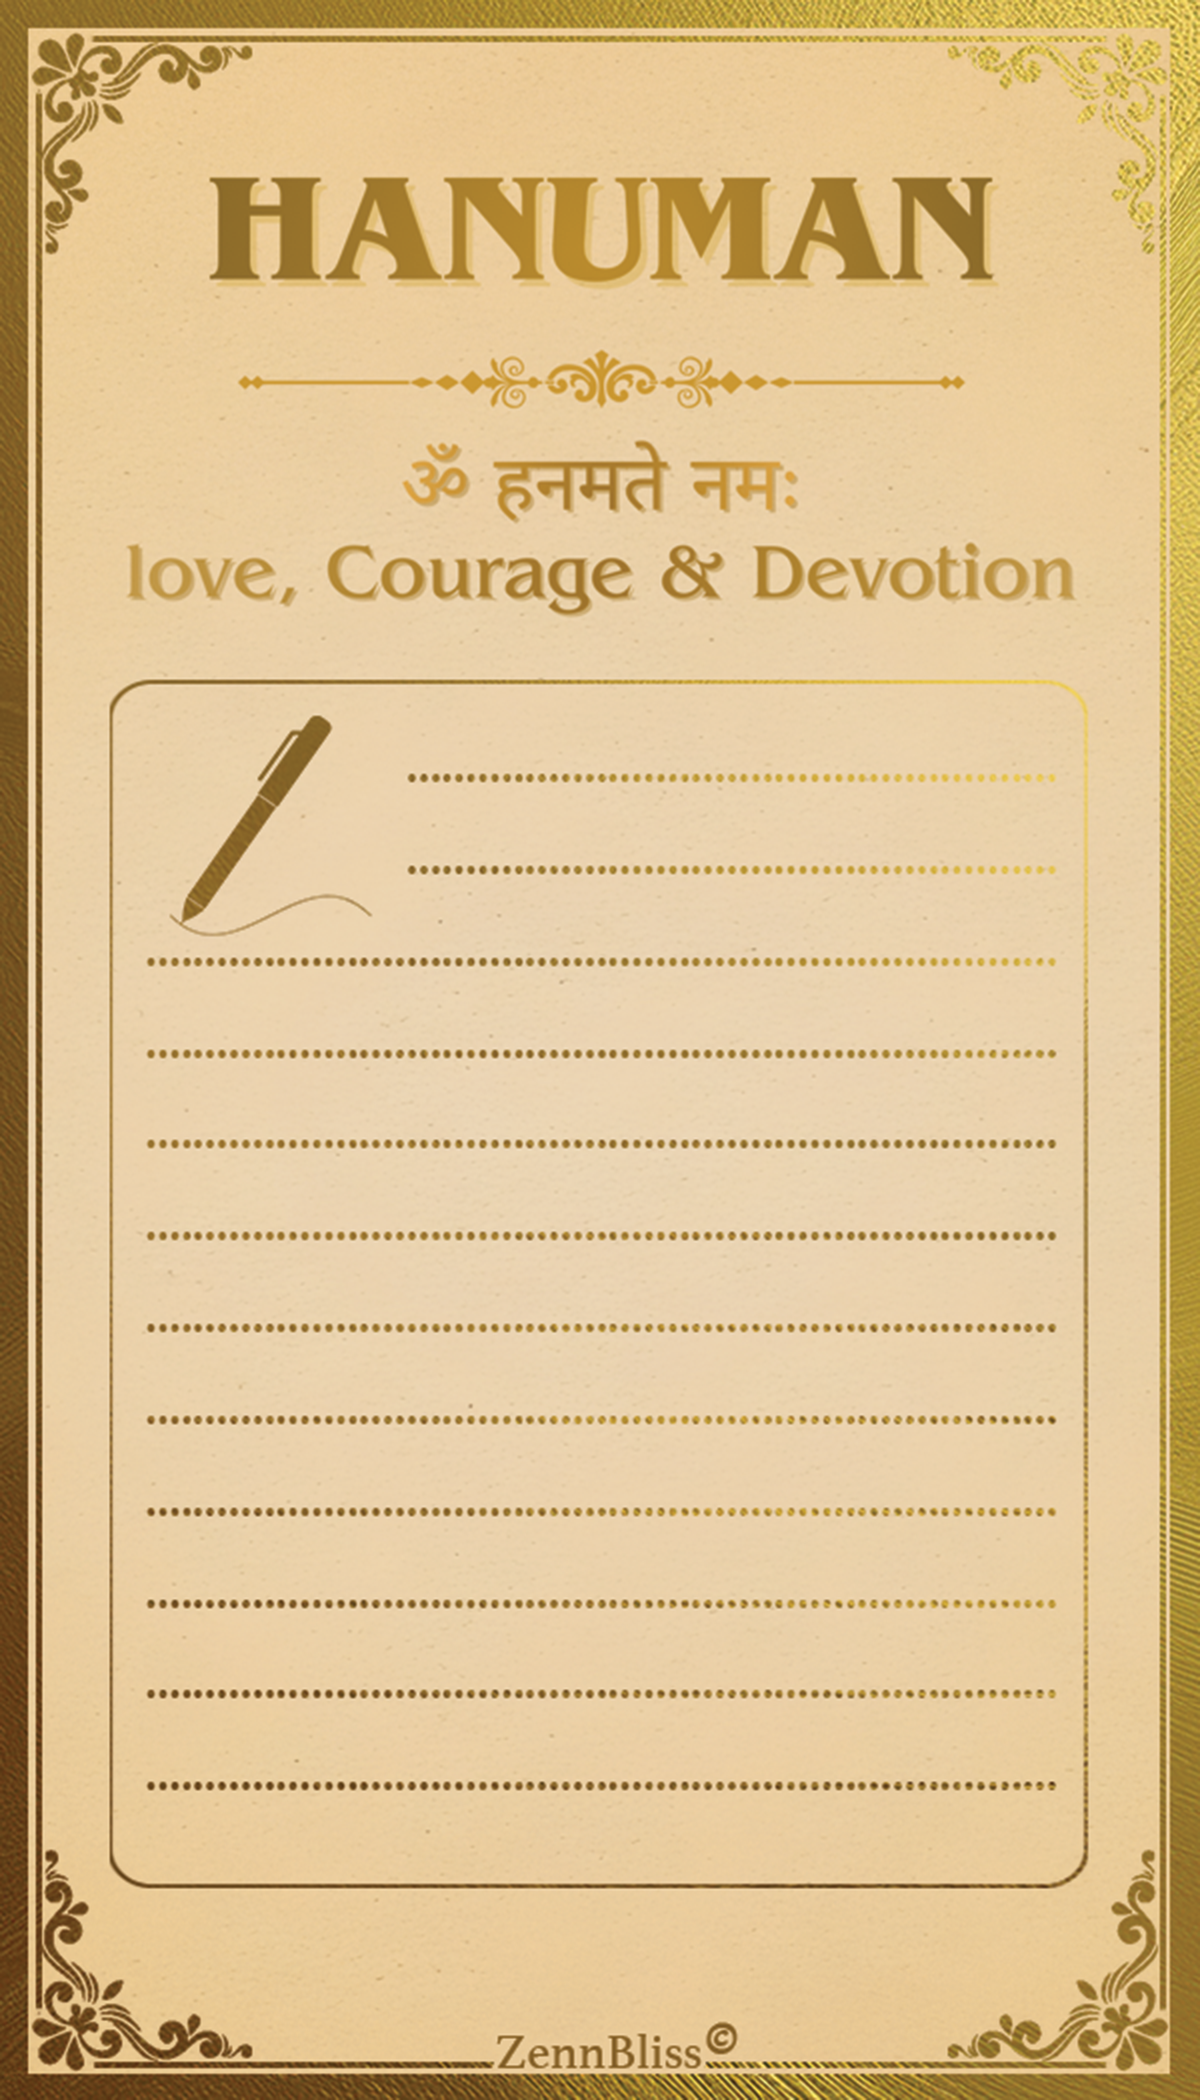 HANUMAN
ॐ हनमते नमः
love, Courage & Devotion
ZennBliss©